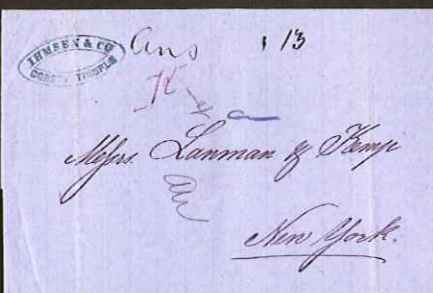 IHMSEN & Co
CONSTANTINOPLE
Ans
13
Messrs. Lanman & Kemp
New York.